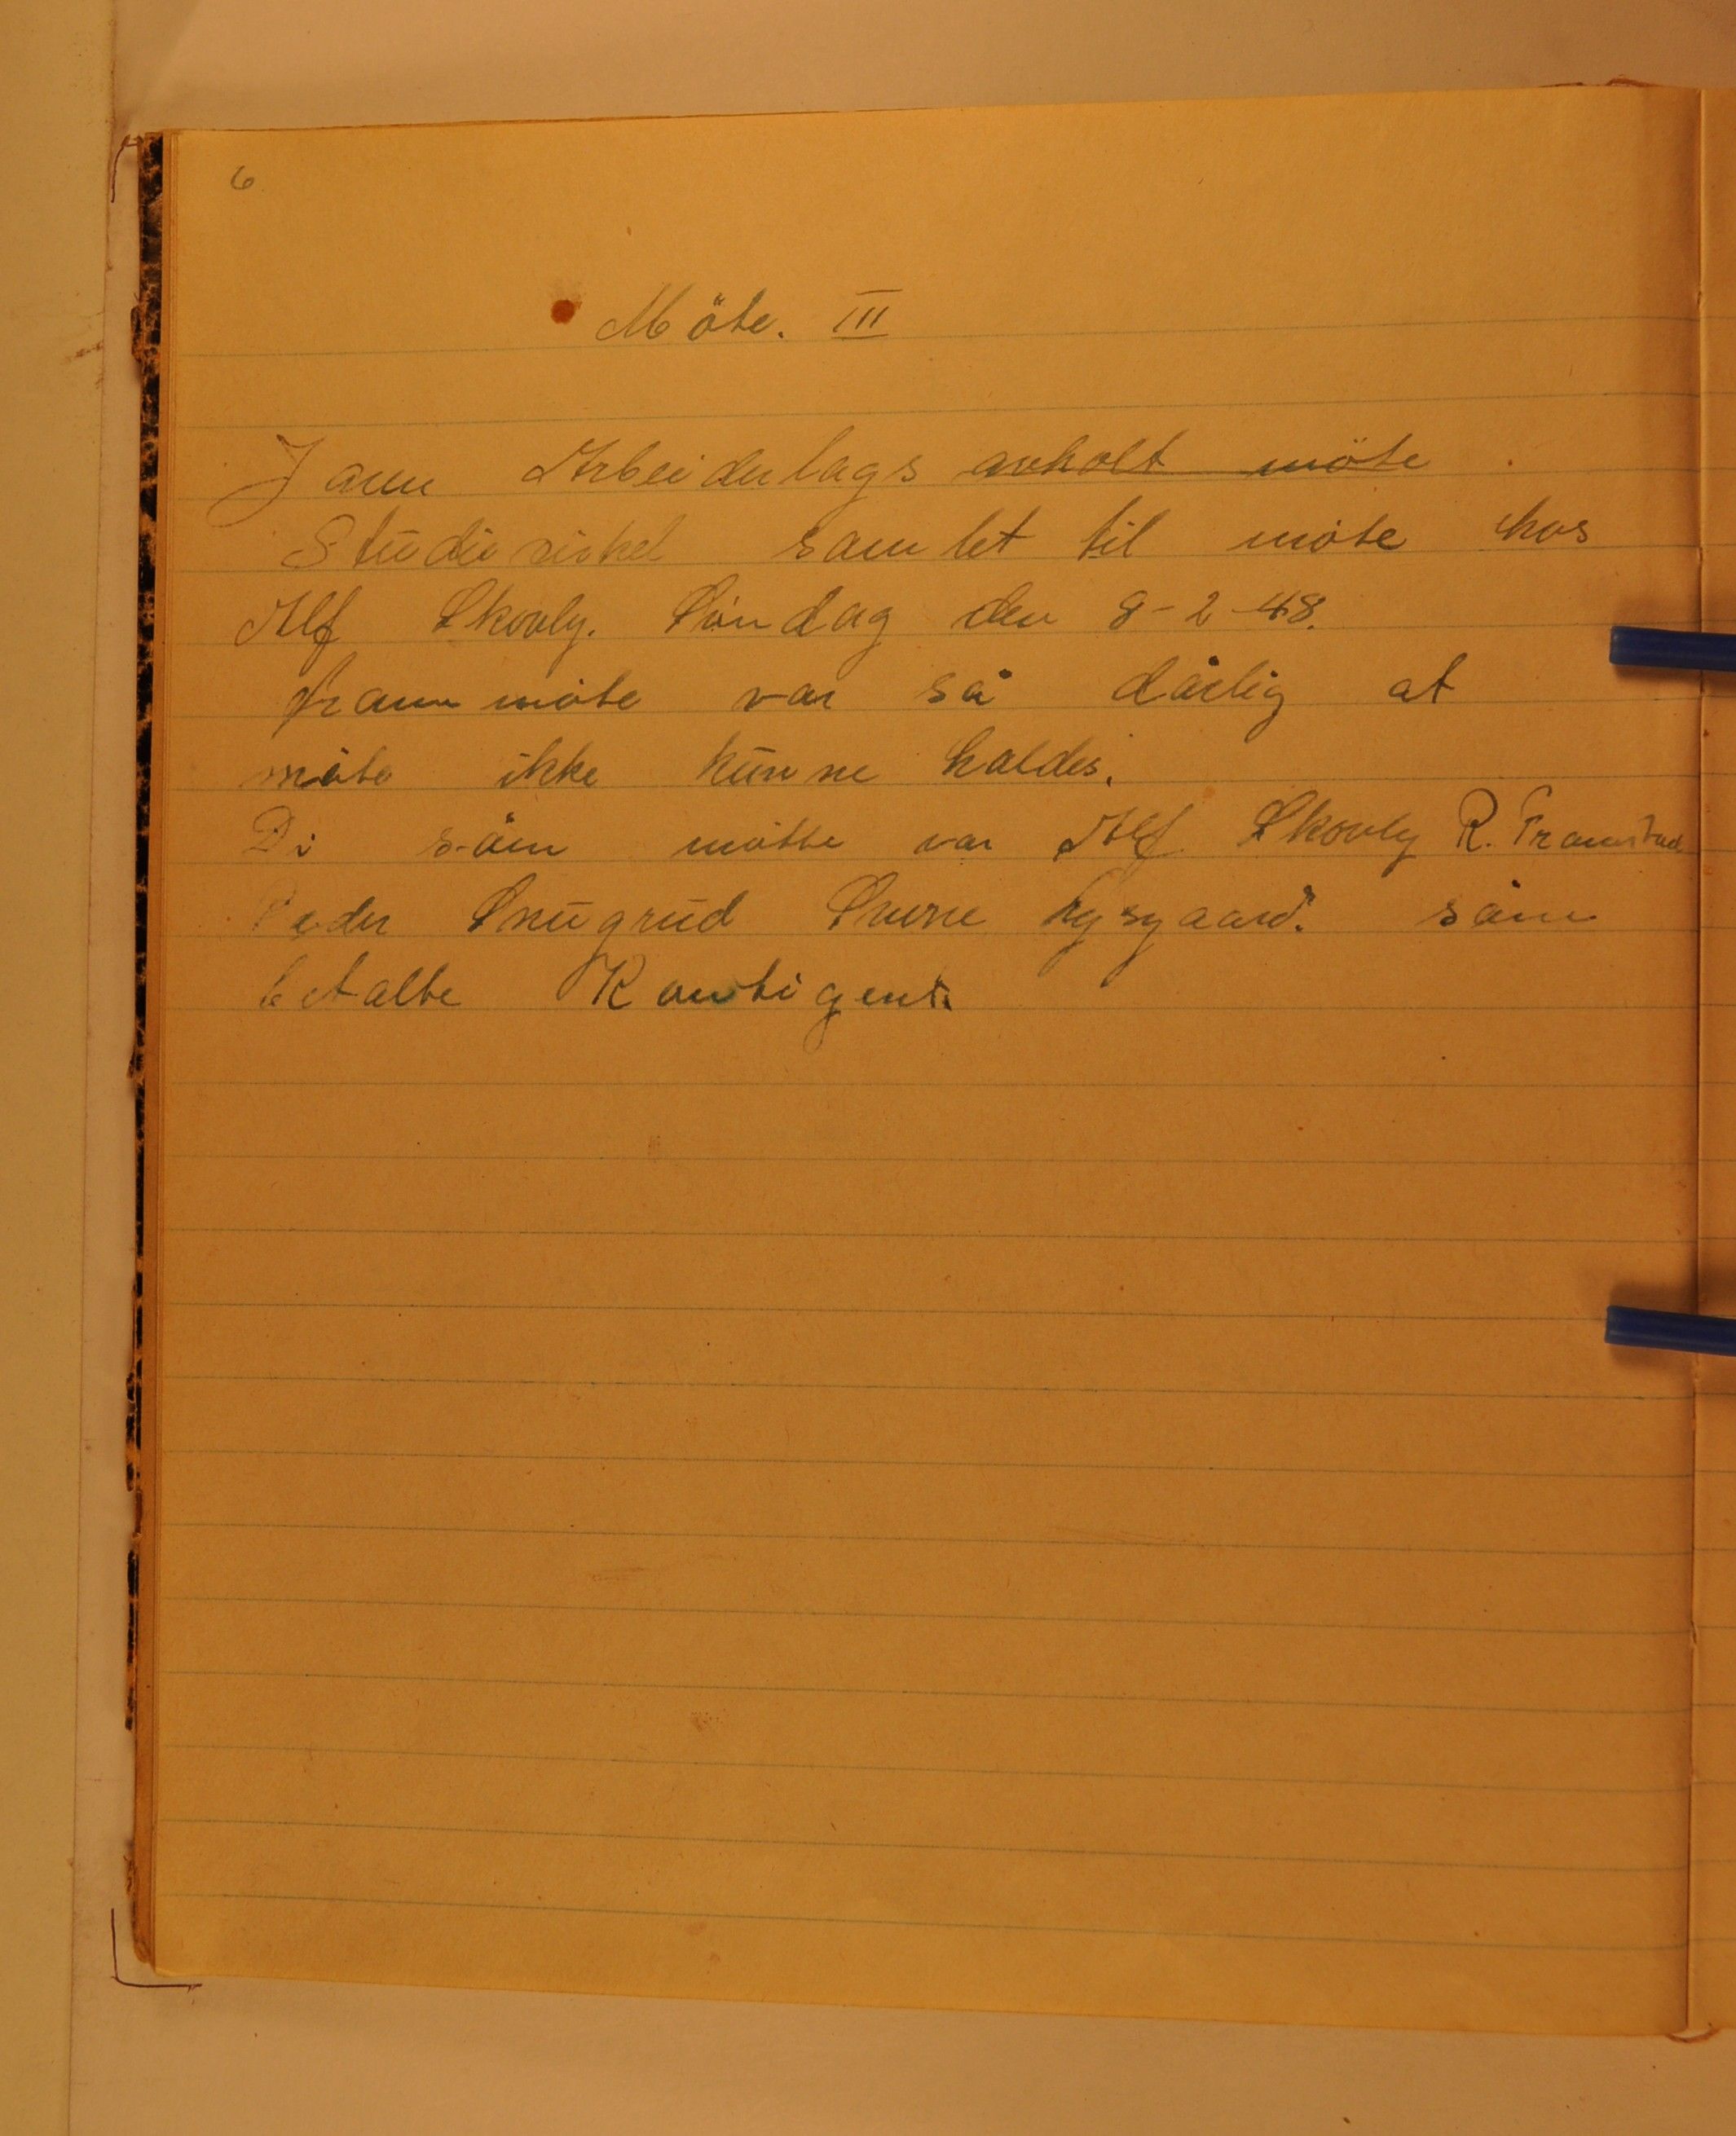 6
Möte. III
Jaun Arbeiderlags avholt möte
Studiesirkel samlet til möte hos
Alf Skovly. Söndag den 8-2-48.
frammöte var så dårlig at
möte ikke kunne holdes.
Di såm mötte var Alf Skovly R. Framstad
Peder Snugrud Sverre Rygaard. såm
betalte Kontigent.